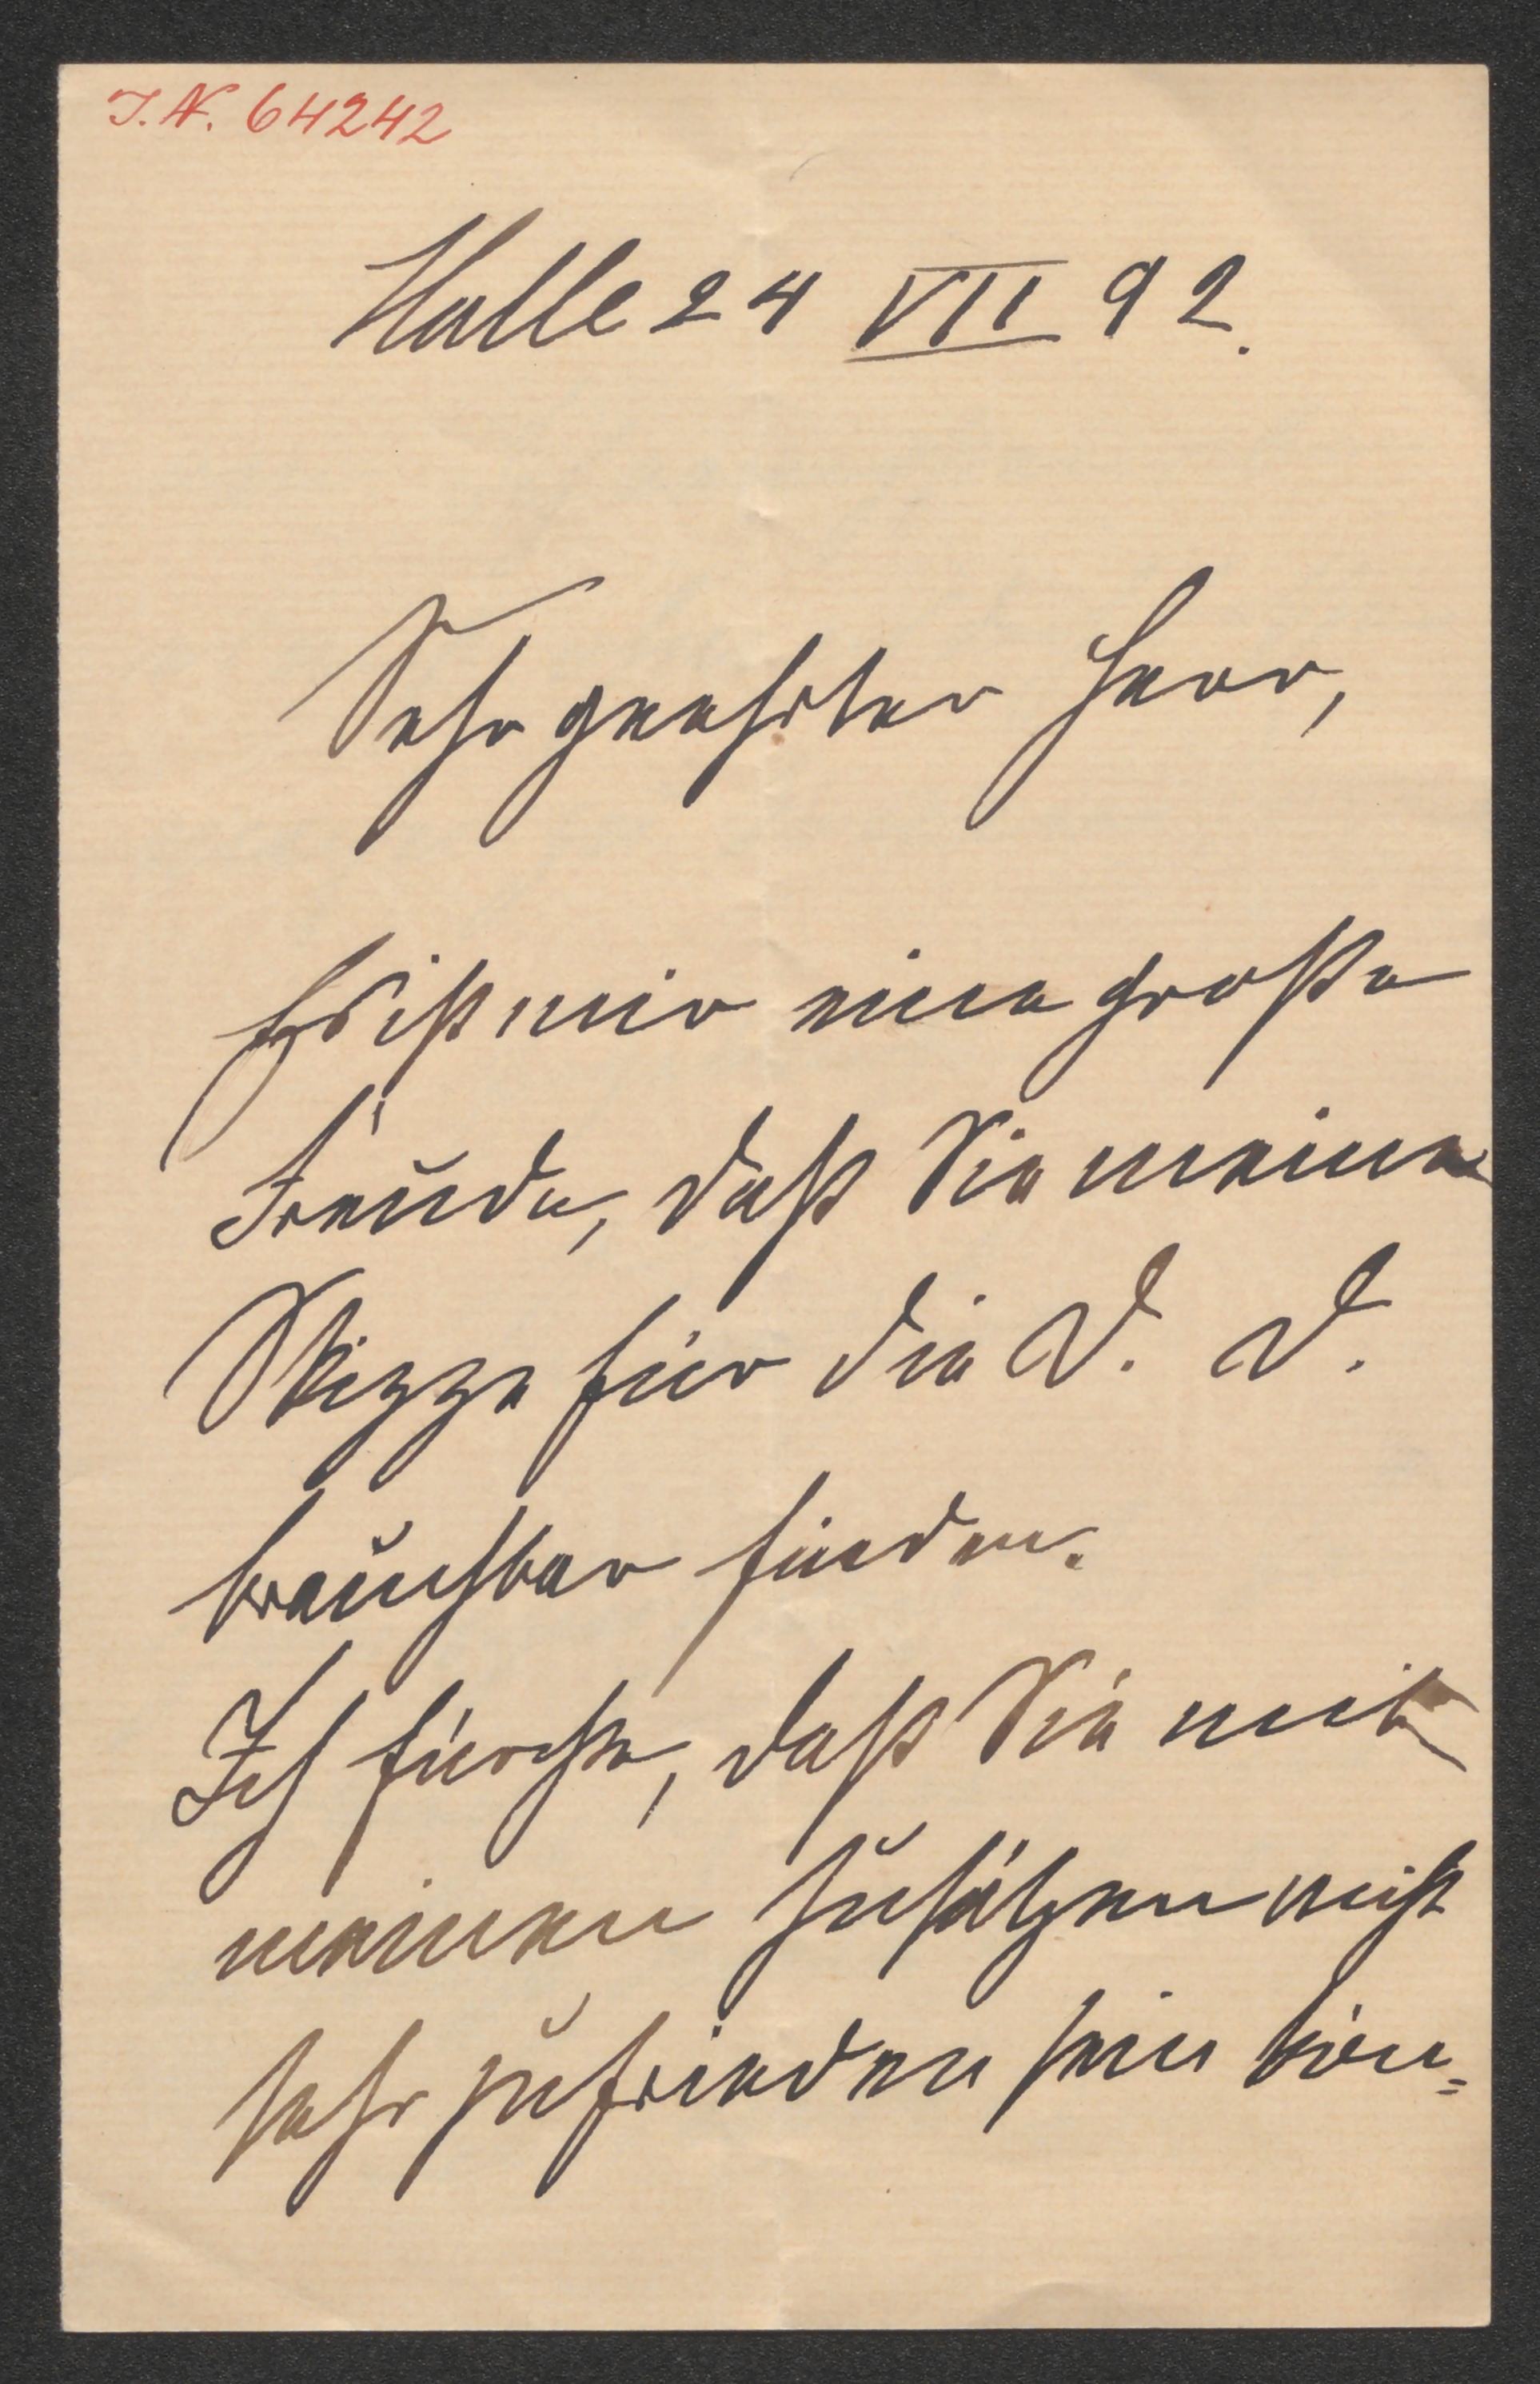 J. N. 64242
Halle 24 VII 92.
Sehr geehrter Herr,
Es ist mir eine große
Freude, daß Sie meine
Skizze für die D. D.
brauchbar finden.
Ich fürchte, daß Sie mit
meinen Zusätzen nicht
sehr zufrieden sein kön=